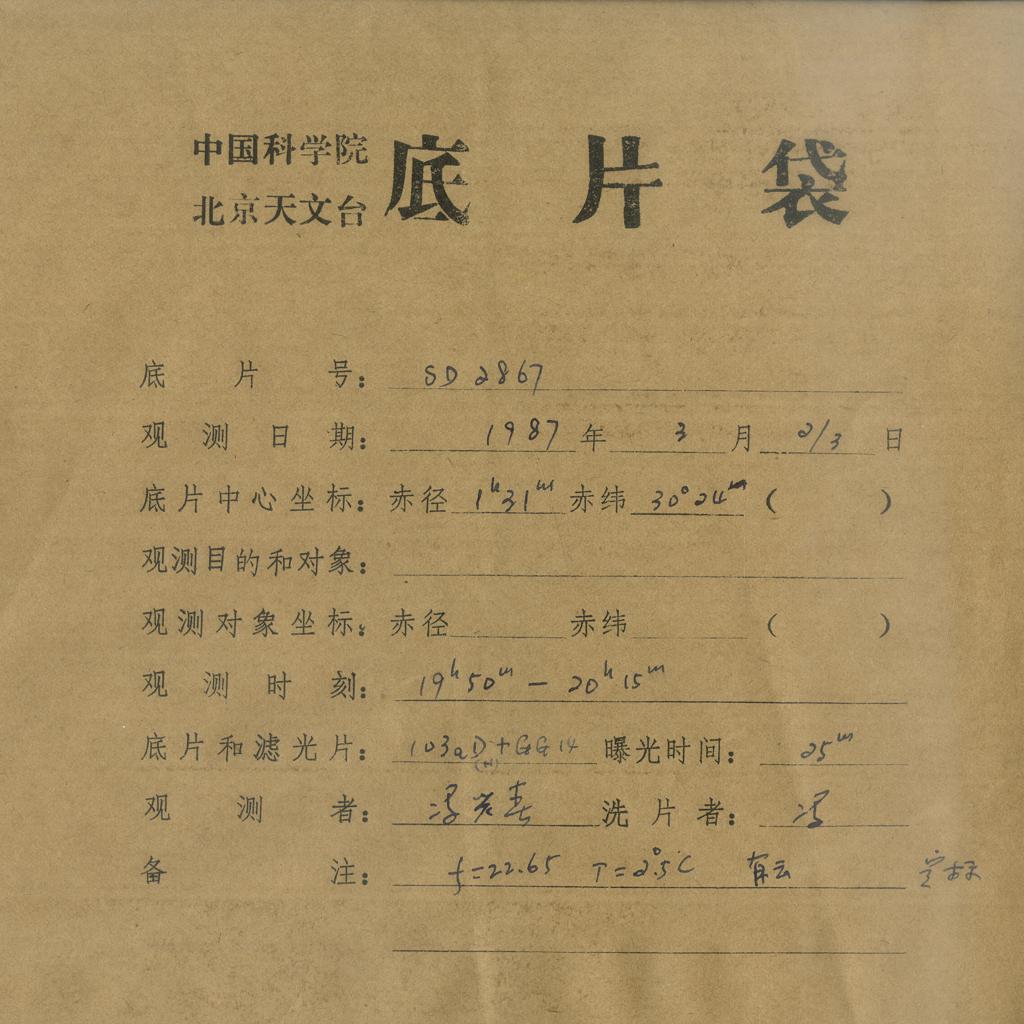 中国科学院
北京天文台
底片袋
底片号： SD 2867
观测日期： 1987年 3月 2/3日
底片中心坐标：赤径 1ʰ31ᵐ 赤纬 30°24ᵐ （ ）
观测目的和对象：
观测对象坐标：赤径 赤纬 （ ）
观测时刻： 19ʰ50ᵐ — 20ʰ15ᵐ
底片和滤光片： 103aD+GG14 曝光时间： 25ᵐ
观测者： 冯 洗片者： 冯
备注： f=22.65 T=2°.5C 有云 定标